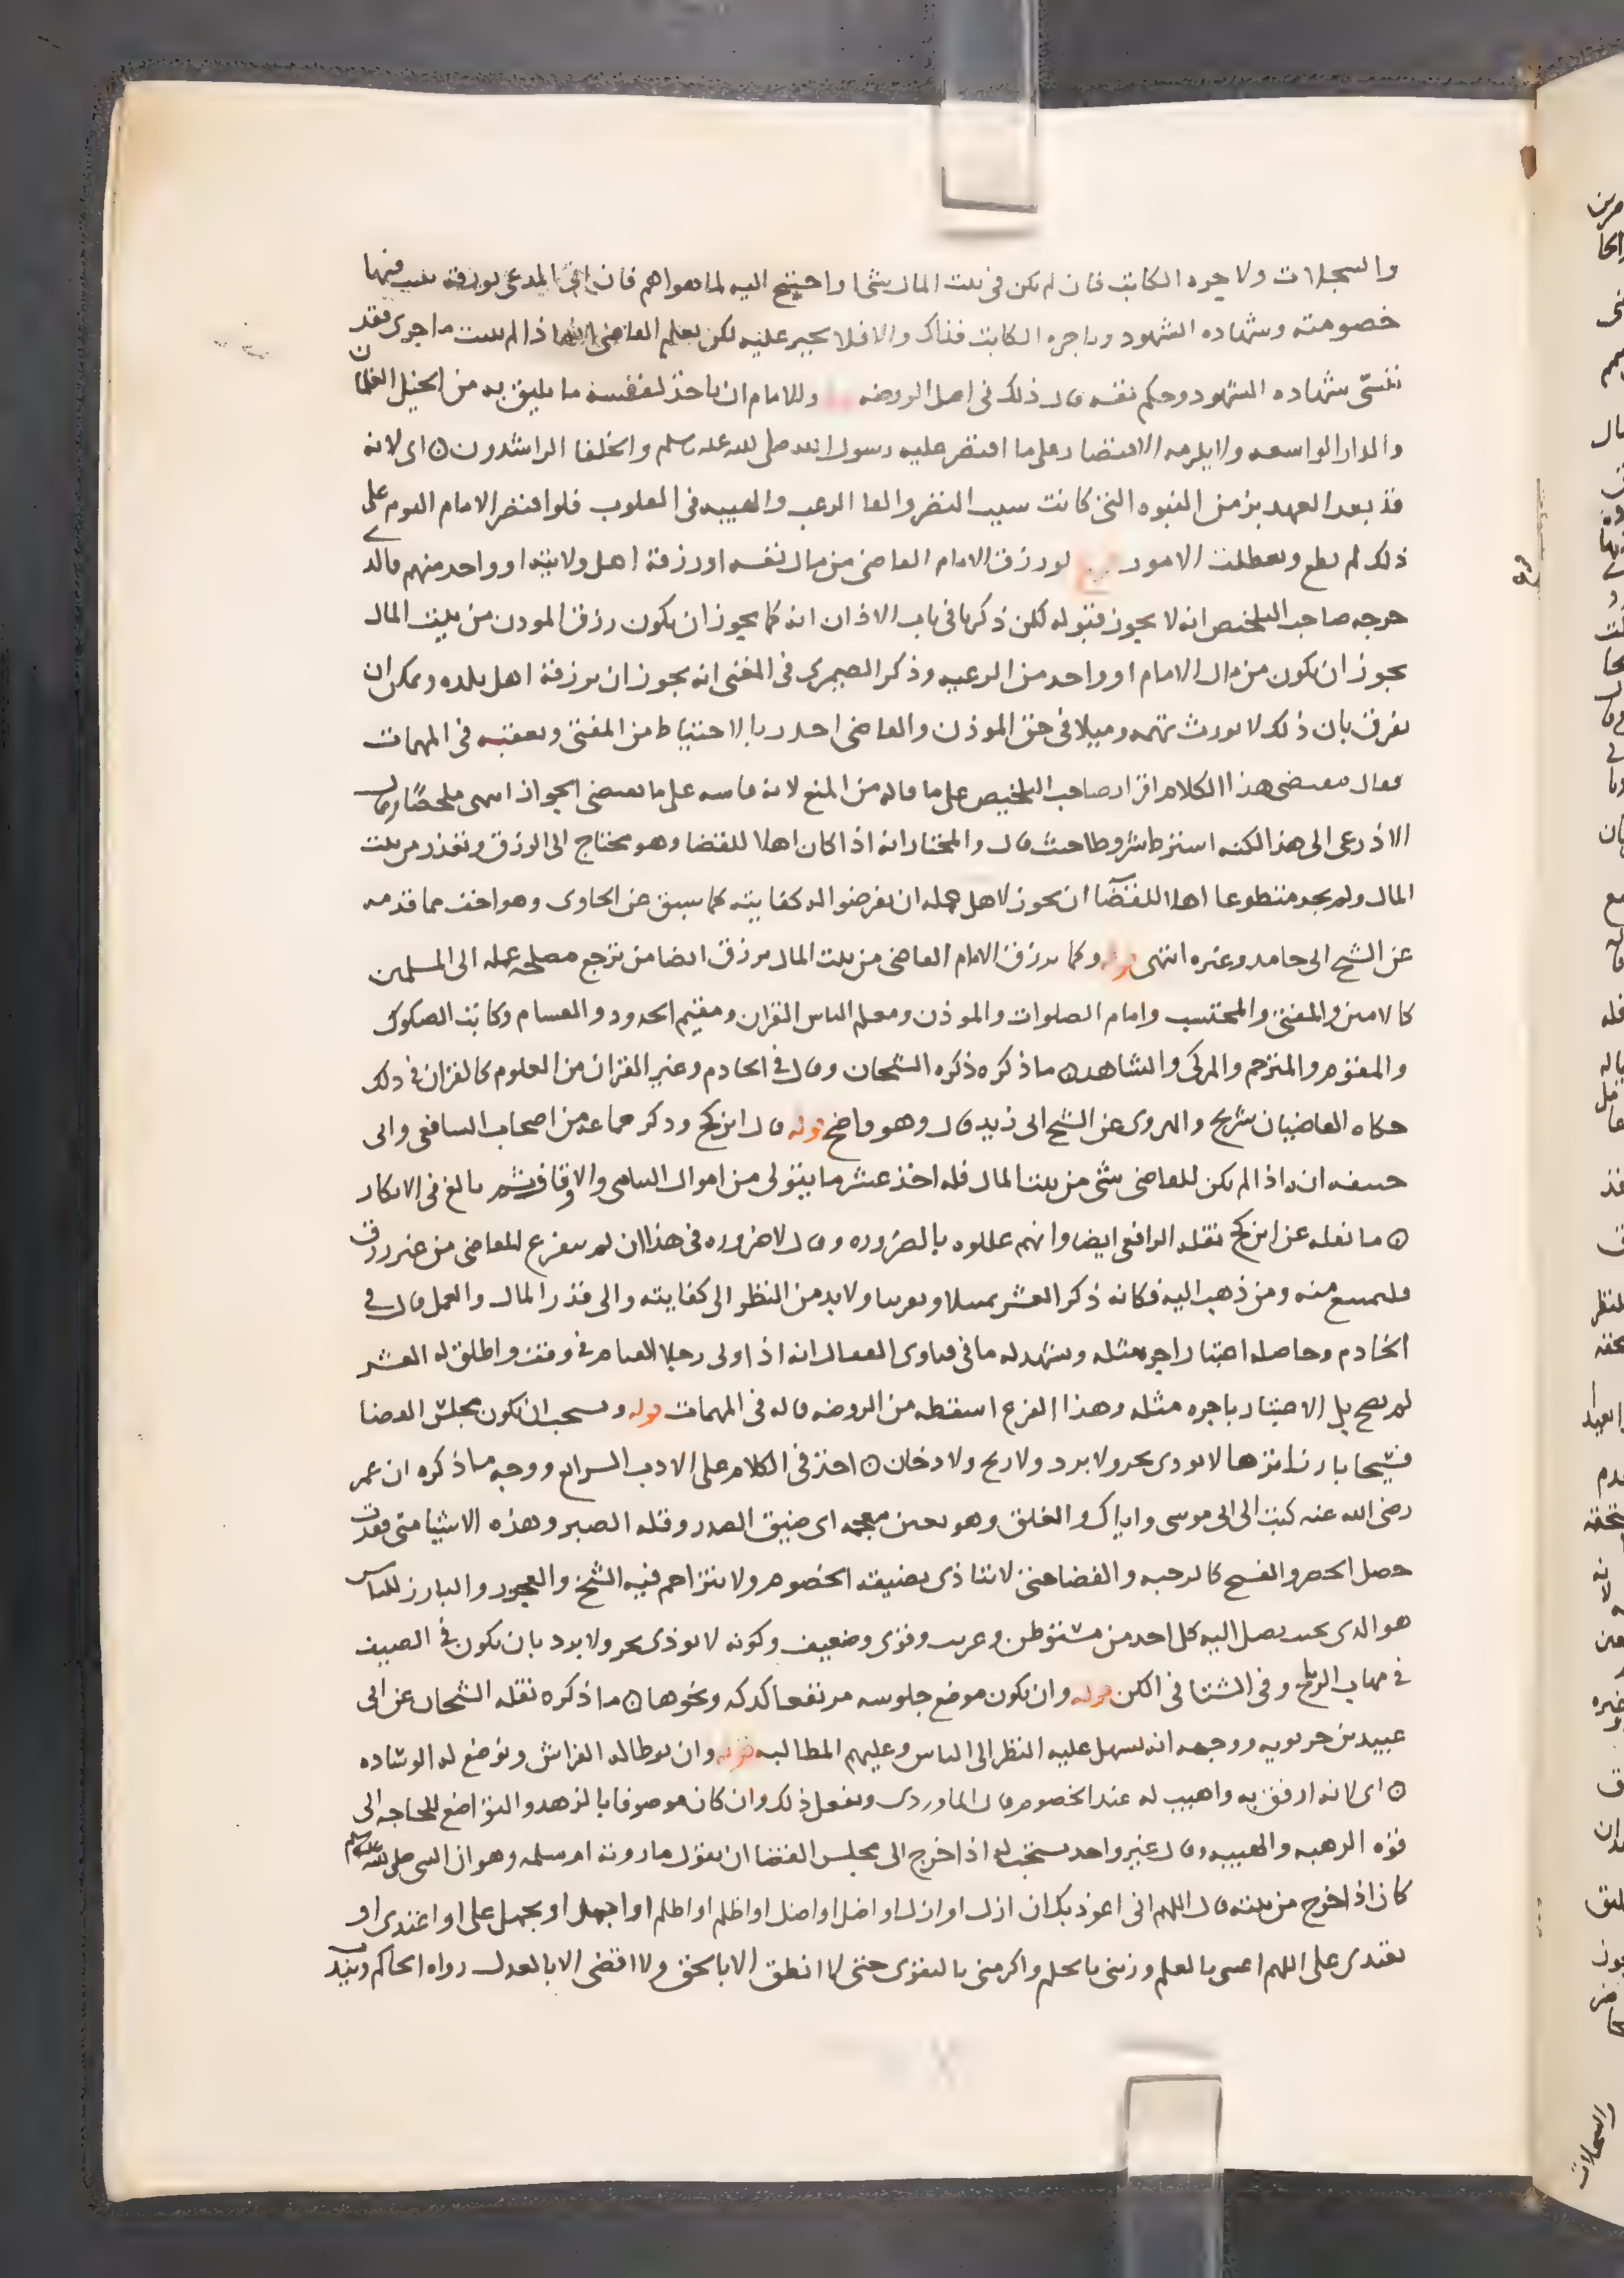 والسجلات ولاجره الكاتب فان لم يكن في بيت المال شى واحتيج اليه لما هو اهم فان اتى المدعى بورقة تثبت فيها
خصومته وشهاده الشهود وباجره الكاتب فذاك والا فلا يجبر عليه لكن يعلم القاضى انه اذا لم يثبت ما جرى فقد
ينسى شهاده الشهود وحكم نفسه قال ذلك في اصل الروضه وللامام ان ياخذ لنفسه ما يليق به من الخيل والغلمان
والدار الواسعه ولا يلزمه الاقتصار على ما اقتصر عليه رسول الله صلى الله عليه وسلم والخلفا الراشدون ای لانه
قد بعد العهد بزمن النبوه التى كانت سبب النصر والقا الرعب والهيبه في القلوب فلو اقتصر الامام اليوم على
ذلك لم يطع وتعطلت الامور لو رزق الامام القاضى من مال نفسه او رزقه اهل ولايته او واحد منهم فالذى
خرجه صاحب التلخيص انه لا يجوز قبوله لكن ذكرنا في باب الاذان انه كما يجوز ان يكون رزق الموذن من بيت المال
يجوز ان يكون من مال الامام او واحد من الرعيه وذكر الصيمرى في المفتى انه يجوز ان يرزقه اهل بلده ويمكن ان
يفرق بان ذلك لا يورث تهمه وميلا في حق الموذن والقاضى اجدر بالاحتياط من المفتى وتعقبه في المهمات
فقال مقتضى هذا الكلام اقرار صاحب التلخيص على ما قاله من المنع لانه قاسه على ما يقتضى الجواز انتهى ملخصا ومال
الاذرعى الى هذا لكنه اشترط شروطا حيث قال والمختار انه اذا كان اهلا للقضا وهو محتاج الى الرزق وتعذر من بيت
المال ولم يجد متطوعا اهلا للقضا ان يجوز لاهل عمله ان يفرضوا له كفايته كما سبق عن الحاوى وهو اخف مما قدمه
عن الشيخ ابى حامد وغيره انتهى قوله وكما يرزق الامام القاضى من بيت المال يرزق ايضا من ترجع مصلحة عمله الى المسلمين
كالامير والمفتى والمحتسب وامام الصلوات والموذن ومعلم الناس القران ومقيم الحدود والقسام وكاتب الصكوك
والمقوم والمترجم والمزكى والشاهد ما ذكره ذكره الشيخان وقال في الخادم وغير القران من العلوم كالقران في ذلك
حكاه القاضيان شريح والروى عن الشيخ ابى زيد قال وهو واضح قوله قال ابن كج وذكر جماعه من اصحاب الشافعى وابى
حنيفه انه اذا لم يكن للقاضى شى من بيت المال فله اخذ عشر ما يتولى من اموال اليتامى والاوقاف ثم بالغ في الانكار
ما نقله عن ابن كج نقله الرافعى ايضا وانهم عللوه بالضروره وقال لا ضروره في هذا ان لم يتفرغ للقاضى من غير رزق
فليمتنع منه ومن ذهب اليه فكانه ذكر العشر تمثيلا وتقريبا ولابد من النظر الى كفايته والى قدر المال والعمل قال في
الخادم وحاصله اعتبار اجره مثله ويشهد له ما في فتاوى القفال انه اذا ولى رجلا القيام في وقف واطلق له العشر
لم يصح بل الاعتبار باجره مثله وهذا الفرع اسقطه من الروضه قاله في المهمات قوله ويستحب ان يكون مجلس القضا
فسيحا بارزا نزها لا يوذى بحر ولا برد ولا ريح ولا دخان اخذ في الكلام على الادب الرابع ووجه ما ذكره ان عمر
رضى الله عنه كتب الى ابى موسى واياك والغلق وهو بغين معجمه اى ضيق الصدر وقلة الصبر وهذه الاشيا متى فقدت
حصل الحصر والفسيح كالرحبه والفضا حتى لا يتاذى بضيقه الخصوم ولا يتزاحم فيه الشيخ والعجوز والبارز للناس
هو الذى بحيث يصل اليه كل احد من مستوطن وغريب وقوى وضعيف وكونه لا يوذى بحر ولا برد بان يكون في الصيف
في مهاب الرياح وفى الشتا فى الكن قوله وان يكون موضع جلوسه مرتفعا كدكه ونحوها ما ذكره نقله الشيخان عن ابى
عبيد بن حربويه ووجهه انه يسهل عليه النظر الى الناس وعليهم المطالبه قوله وان يوطا له الفراش وتوضع له الوساده
اى لانه ارفق به واهيب له عند الخصوم قال الماوردى ويفعل ذلك وان كان موصوفا بالزهد والتواضع للحاجه الى
قوه الرهبه والهيبه وقال غير واحد يستحب له اذا خرج الى مجلس القضا ان يقول ما روته ام سلمه وهو ان النبى صلى الله عليه وسلم
كان اذا خرج من بيته قال اللهم انى اعوذ بك ان ازل او ازل او اضل او اضل او اظلم او اظلم او اجهل او يجهل على او اعتدى او
يعتدى على اللهم اعنى بالعلم وزينى بالحلم واكرمنى بالتقوى حتى لا انطق الا بالحق ولا اقضى الا بالعدل رواه الحاكم
والسجلات